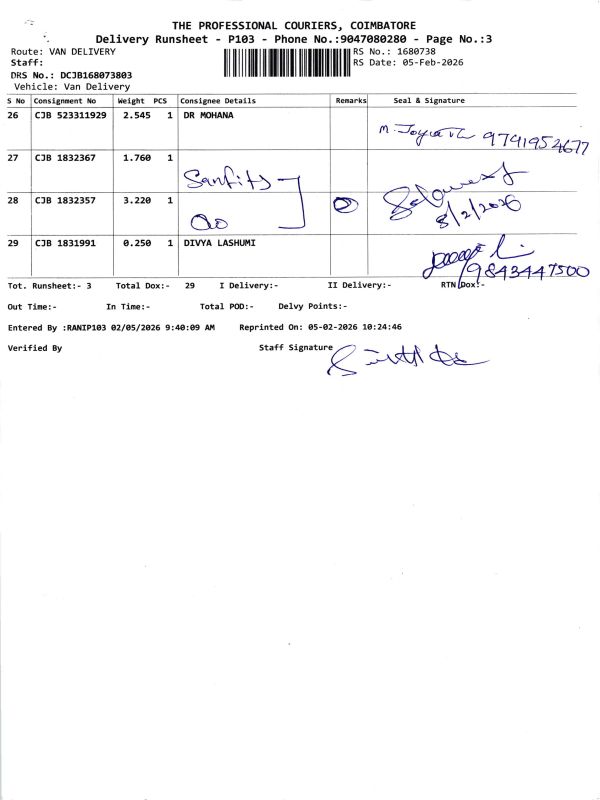 THE PROFESSIONAL COURIERS, COIMBATORE
Delivery Runsheet - P103 - Phone No.:9047080280 - Page No.:3
Route: VAN DELIVERY RS No.: 1680738
Staff: RS Date: 05-Feb-2026
DRS No.: DCJB168073803
Vehicle: Van Delivery
S No Consignment No Weight PCS Consignee Details Remarks Seal & Signature
26 CJB 523311929 2.545 1 DR MOHANA
9791954677
27 CJB 1832367 1.760 1
28 CJB 1832357 3.220 1
5/2/2026
29 CJB 1831991 0.250 1 DIVYA LASHUMI
9843447500
Tot. Runsheet:- 3 Total Dox:- 29 I Delivery:- II Delivery:- RTN Dox:-
Out Time:- In Time:- Total POD:- Delvy Points:-
Entered By :RANIP103 02/05/2026 9:40:09 AM Reprinted On: 05-02-2026 10:24:46
Verified By Staff Signature